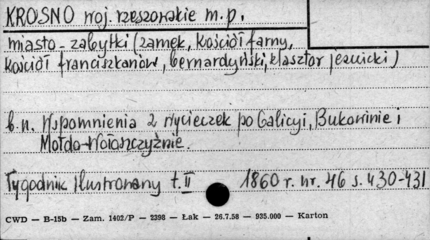 KROSNO woj. rzeszowskie m.p.
miasto - zabytki (zamek, kościół farny,
kościół franciszkanów, bernardyński, klasztor jezuicki)
b.n. Wspomnienia z wycieczek po Galicyi, Bukowinie i
Mołdo-Wołoszczyźnie.
Tygodnik Ilustrowany t. II 1860 r. nr. 46 s. 430-431
CWD — B-15b — Zam. 1402/P — 2398 — Łak — 26.7.58 — 935.000 — Karton